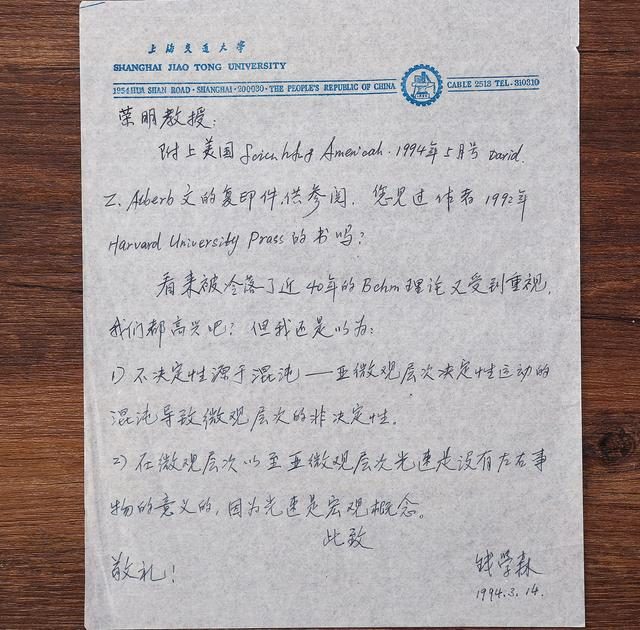 上海交通大学
SHANGHAI JIAO TONG UNIVERSITY
1954 HUA SHAN ROAD · SHANGHAI · 200030 · THE PEOPLE'S REPUBLIC OF CHINA CABLE 2513 TEL. 310310
荣明教授:
附上美国 Scientific American. 1994年5月号 David.
Z. Alberb 文的复印件,供参阅. 您见过作者1992年
Harvard University Prass 的书吗?
看来被冷落了近40年的Bohm理论又受到重视,
我们都高兴吧? 但我还是以为:
1) 不决定性源于混沌——亚微观层次决定性运动的
混沌导致微观层次的非决定性。
2) 在微观层次以至亚微观层次光速是没有左右事
物的意义的,因为光速是宏观概念。
此致
敬礼!
钱学森
1994.3.14.